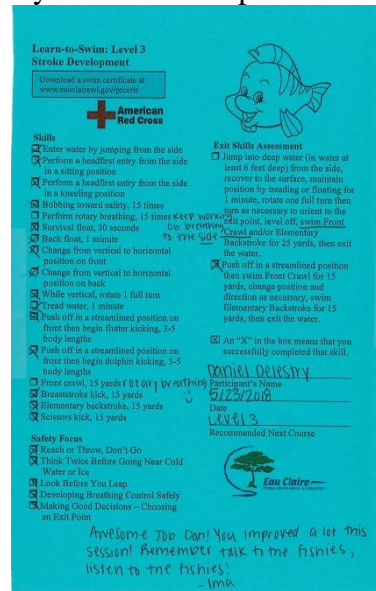 Learn-to-Swim: Level 3
Stroke Development
Download a swim certificate at
www.eauclairewi.gov/precerts
American
Red Cross
Skills
Enter water by jumping from the side
Perform a headfirst entry from the side
in a sitting position
Perform a headfirst entry from the side
in a kneeling position
Bobbing toward safety, 15 times
Perform rotary breathing, 15 times keep work
Survival float, 30 seconds on breathing
Back float, 1 minute to the side
Change from vertical to horizontal
position on front
Change from vertical to horizontal
position on back
While vertical, rotate 1 full turn
Tread water, 1 minute
Push off in a streamlined position on
front then begin flutter kicking, 3-5
body lengths
Push off in a streamlined position on
front then begin dolphin kicking, 3-5
body lengths
Front crawl, 15 yards rotary breathing :)
Breaststroke kick, 15 yards
Elementary backstroke, 15 yards
Scissors kick, 15 yards
Safety Focus
Reach or Throw, Don't Go
Think Twice Before Going Near Cold
Water or Ice
Look Before You Leap
Developing Breathing Control Safely
Making Good Decisions – Choosing
an Exit Point
Exit Skills Assessment
Jump into deep water (in water at
least 6 feet deep) from the side,
recover to the surface, maintain
position by treading or floating for
1 minute, rotate one full turn then
turn as necessary to orient to the
exit point, level off, swim Front
Crawl and/or Elementary
Backstroke for 25 yards, then exit
the water.
Push off in a streamlined position
then swim Front Crawl for 15
yards, change position and
direction as necessary, swim
Elementary Backstroke for 15
yards, then exit the water.
An "X" in the box means that you
successfully completed that skill.
Daniel Delestry
Participant's Name
5/23/2018
Date
Level 3
Recommended Next Course
Eau Claire
Awesome Job Dan! You improved a lot this
session! Remember talk to the fishies,
listen to the fishies!
-Ima